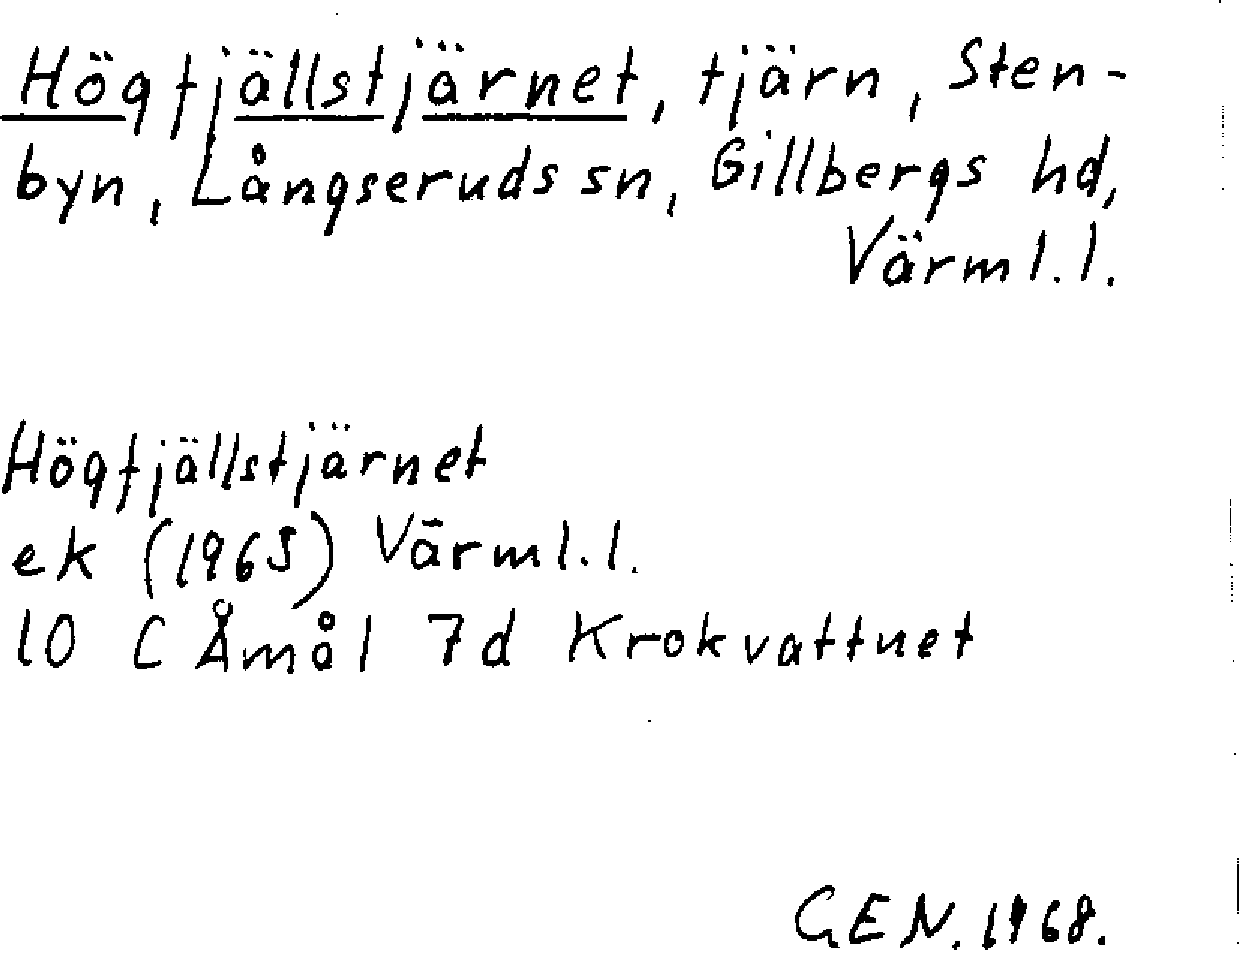 Högfjällstjärnet, tjärn, Sten-
byn, Långseruds sn, Gillbergs hd,
Värml.l.
Högfjällstjärnet
ek (1965) Värml.l.
10 C Åmål 7d Krokvattnet
G.E.N. 1968.